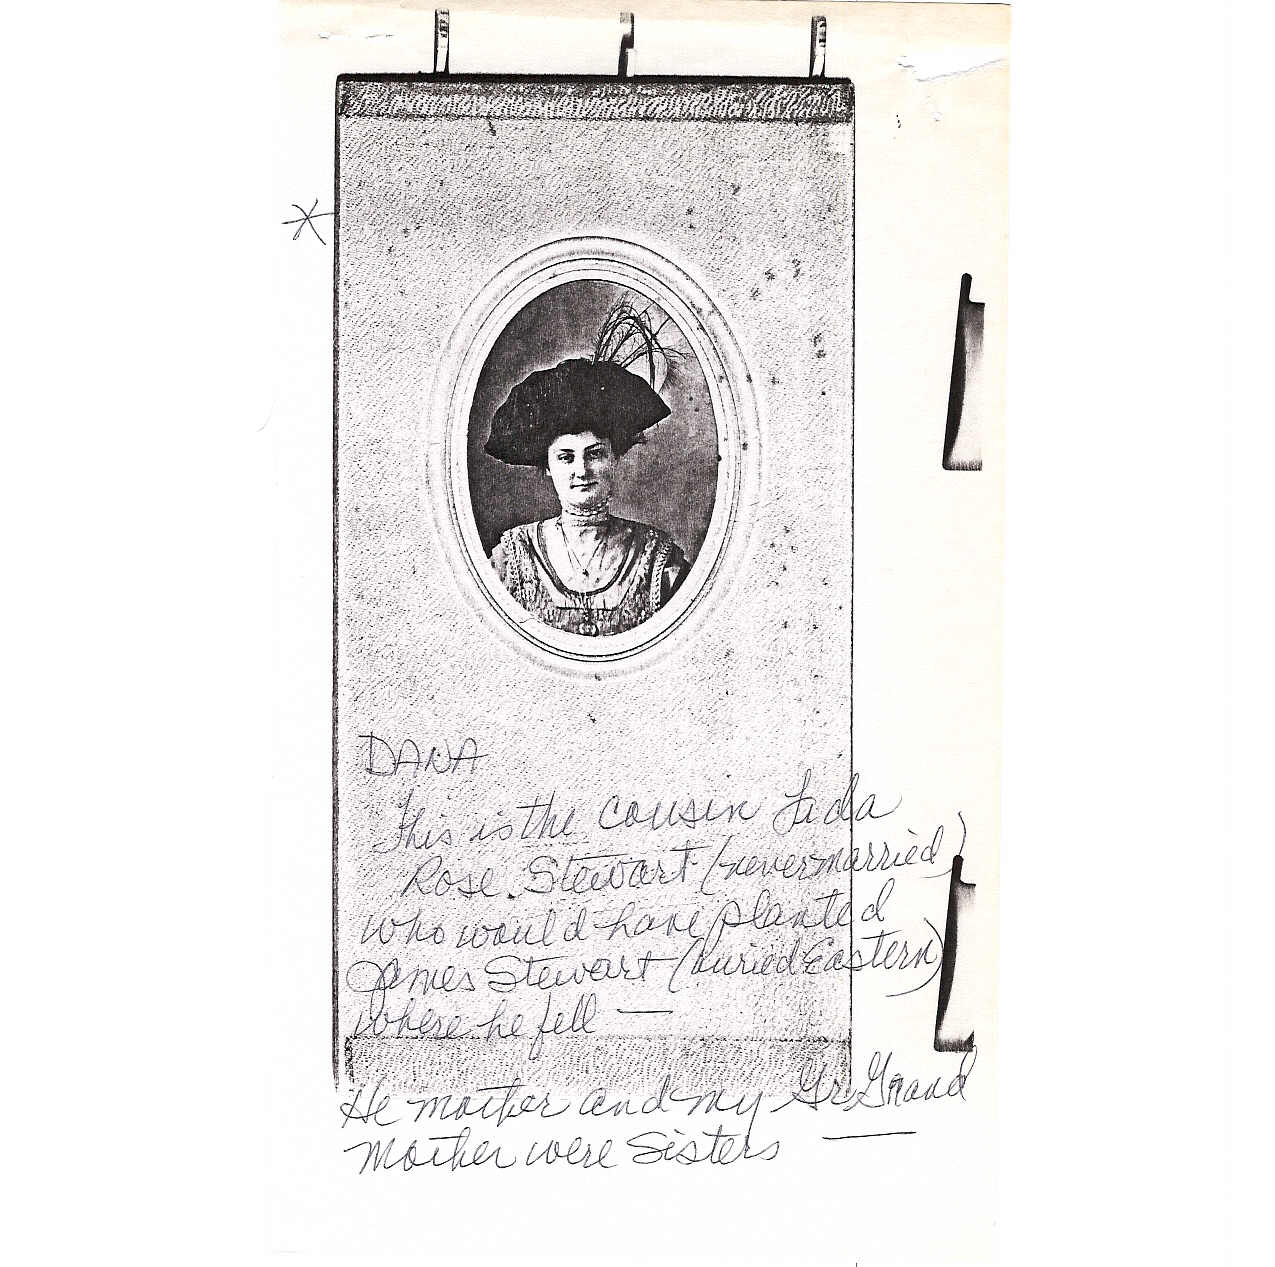 *
DANA
This is the cousin Lida
Rose Stewart (never married)
who would have planted
James Stewart (buried Eastern)
where he fell —
He mother and my Gr. Grand
Mother were Sisters —